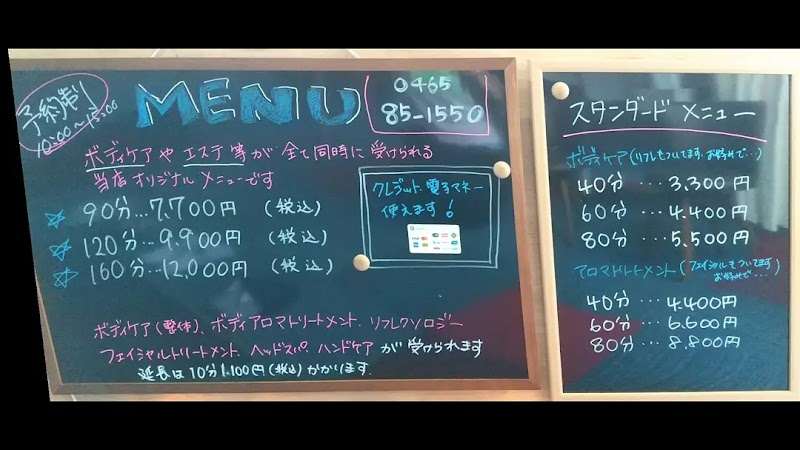 予約制
10:00～15:00
MENU
0465
85-1550
ボディケアや エステ等が 全て同時に受けられる
当店オリジナルメニューです
☆ 90分...7,700円 (税込)
☆ 120分...9,900円 (税込)
☆ 160分...12,000円 (税込)
クレジット 電子マネー
使えます!
ボディケア(整体)、ボディアロマトリートメント、リフレクソロジー
フェイシャルトリートメント、ヘッドスパ、ハンドケアが受けられます
延長は10分1,100円(税込)かかります.
スタンダード メニュー
ボディケア(リフレもついてます、お好みで...)
40分 ...3,300円
60分 ...4,400円
80分 ...5,500円
アロマトリートメント(フェイシャルもついてます
お好みで...)
40分 ...4,400円
60分 ...6,600円
80分 ...8,800円